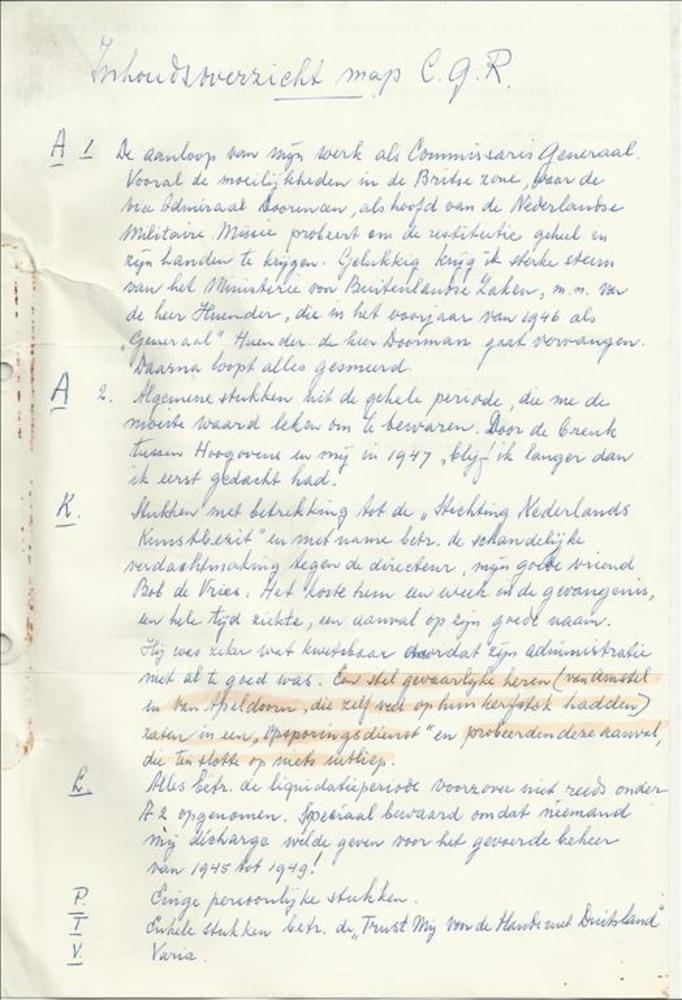 Inhoudsoverzicht map C.G.R.
A 1 De aanloop van mijn werk als Commissaris Generaal.
Vooral de moeilijkheden in de Britse zone, waar de
via Admiraal Doorman, als hoofd van de Nederlandse
Militaire Missie probeert om de restitutie geheel in
zijn handen te krijgen. Gelukkig krijg ik sterke steun
van het Ministerie van Buitenlandse Zaken, m.n. van
de heer Huender, die in het voorjaar van 1946 als
"Generaal" Huender de heer Doorman gaat vervangen.
Daarna loopt alles gesmeerd.
A 2. Algemene stukken uit de gehele periode, die me de
moeite waard leken om te bewaren. Door de breuk
tussen Hoogovens en mij in 1947 "blijf" ik langer dan
ik eerst gedacht had.
K. Stukken met betrekking tot de "Stichting Nederlands
Kunstbezit" en met name betr. de schandelijke
verdachtmaking tegen de directeur, mijn goede vriend
Bob de Vries. Het koste hem een week in de gevangenis,
een hele tijd ziekte, een aanval op zijn goede naam.
Hij was zeker wat kwetsbaar doordat zijn administratie
niet al te goed was. Een stel gevaarlijke heren (van Amstel
en van Apeldoorn, die zelf veel op hun kerfstok hadden)
zaten in een "opsporingsdienst" en probeerden deze aanval,
die ten slotte op niets uitliep.
L. Alles betr. de liquidatieperiode voorzover niet reeds onder
A 2 opgenomen. Speciaal bewaard omdat niemand
mij discharge wilde geven voor het gevoerde beheer
van 1945 tot 1949!
P. Enige persoonlijke stukken.
T Enkele stukken betr. de "Trust Mij van de Handel met Duitsland"
V. Varia.